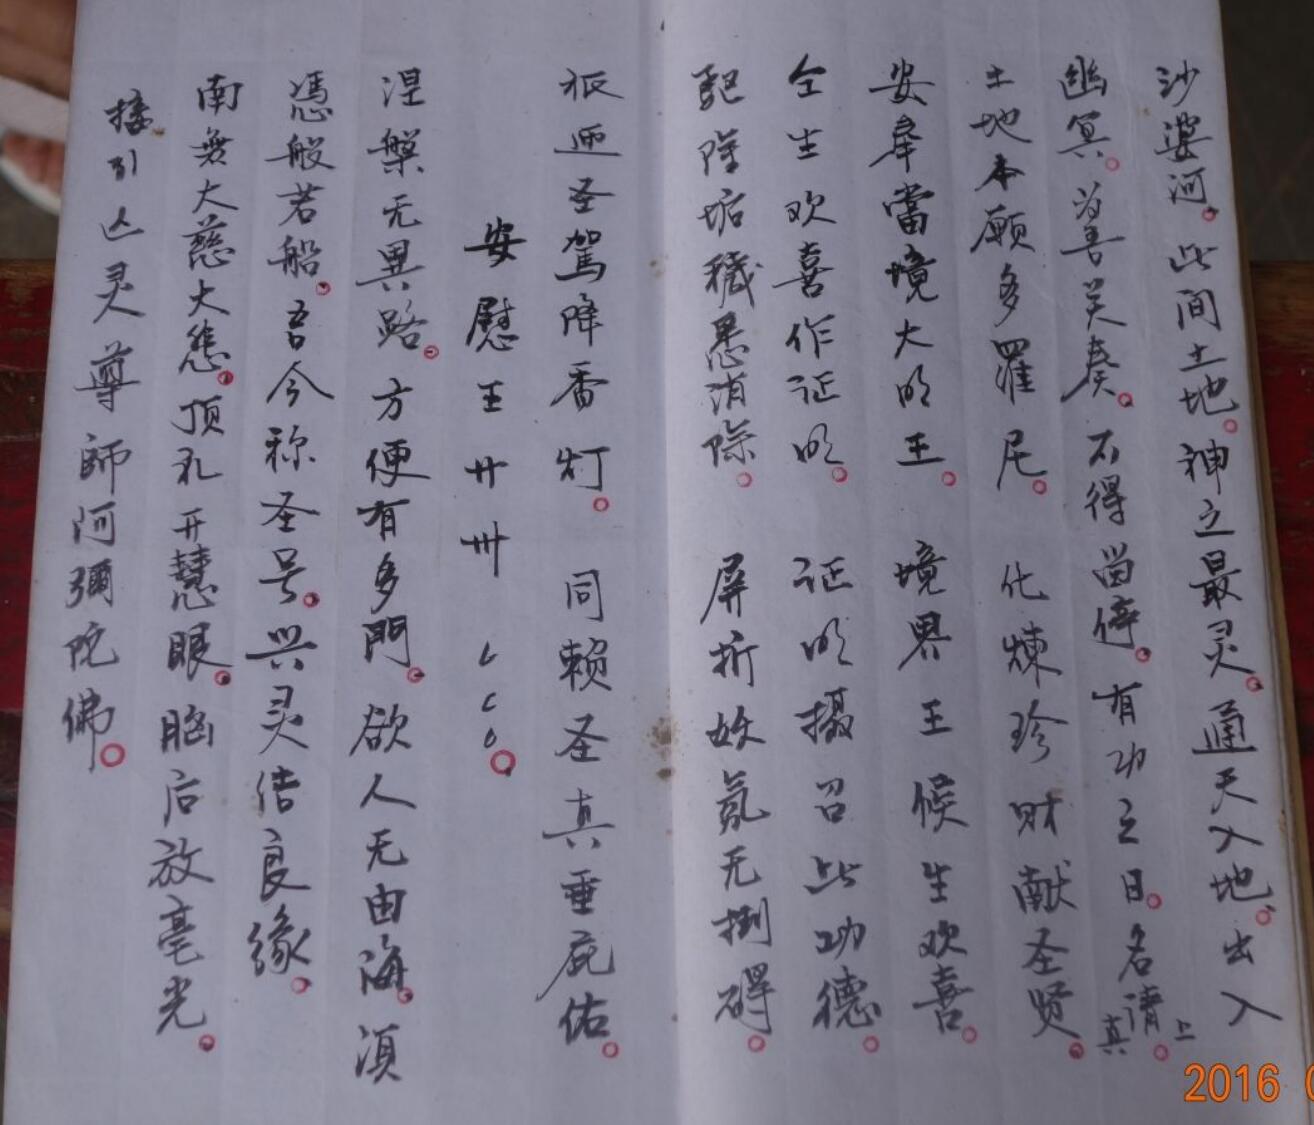 沙婆河。此间土地。神之最灵。通天入地。出入
幽冥。为吾关奏。不得留停。有功之日。名请上真。
土地本愿多罗尼。化煉珍财献圣贤。
安奉當境大明王。境界王候生欢喜。
仝生欢喜作证明。证明摄召此功德。
配隆垢穢悉消除。屏折妖氛无捯碍。
祇迎圣駕降香灯。同赖圣真垂庇佑。
安慰王廾卅
涅槃无異路。方便有多門。欲人无由海。湏
憑般若船。吾今称圣号。兴灵结良缘。
南無大慈大悲。頂礼开慧眼。脑后放毫光。
接引亾灵尊師阿彌陀佛。
2016